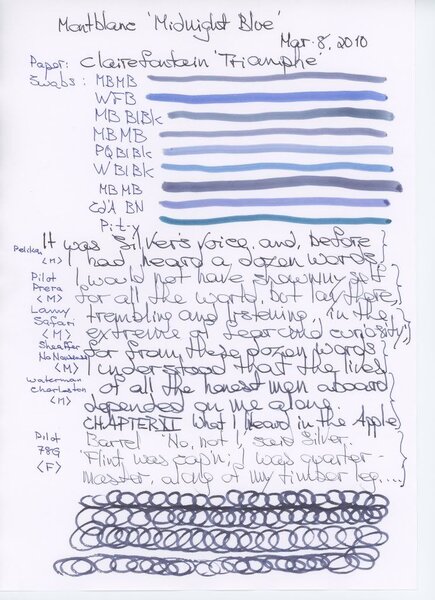 Montblanc 'Midnight Blue'
Mar. 8, 2010
Paper: Clairefontein 'Triomphe'
Swabs: MBMB
WFB
MB BlBlk
MBMB
PQ BlBk
W BlBk
MB MB
Cd'A BN
P.i.t-y
It was Silver's voice, and, before
Pelikan had heard a dozen words,
<M>
Pilot I would not have shown myself
Prera for all the world, but lay there,
<M>
Lamy trembling and listening, in the
Safari extreme of fear and curiosity,
<M>
Sheaffer for from these dozen words
No Nonsense I understood that the lives
<M>
Waterman of all the honest men aboard
Charleston depended on me alone.
<M>
CHAPTER II What I heard in the Apple
Pilot Barrel 'No, not I,' said Silver.
78G 'Flint was cap'n; I was quarter-
<F> master, along of my timber leg....